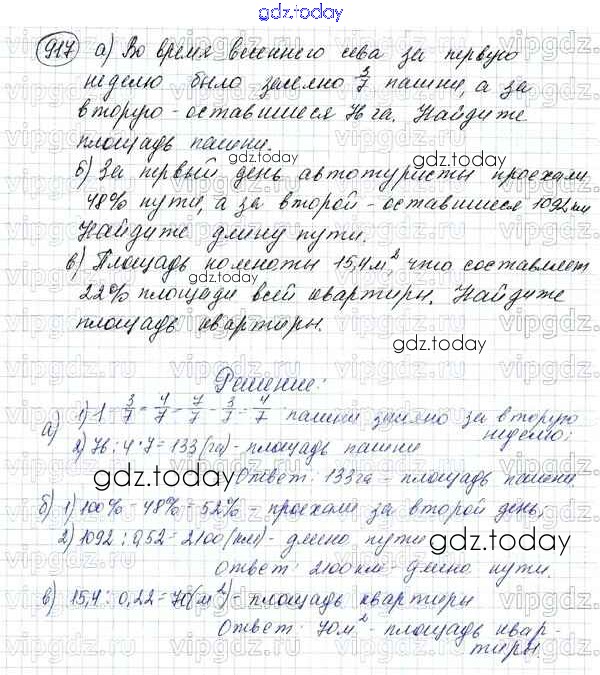 gdz.today
917 а) Во время весеннего сева за первую
неделю было засеяно 3/7 пашни, а за
вторую - оставшиеся 76 га. Найдите
площадь пашни.
gdz.today
б) За первый день автотуристы проехали
48% пути, а за второй - оставшиеся 1092 км
Найдите длину пути.
в) Площадь комнаты 15,4 м², что составляет
gdz.today
22% площади всей квартиры. Найдите
площадь квартиры.
gdz.today
Решение:
а) 1) 1 - 3/7 = 4/7 = 7/7 - 3/7 = 4/7 пашни засеяно за вторую
неделю;
2) 76 : 4 · 7 = 133 (га) - площадь пашни
gdz.today
Ответ: 133 га - площадь пашни.
б) 1) 100% - 48% = 52% - проехали за второй день,
2) 1092 : 0,52 = 2100 (км) - длина пути
gdz.today
Ответ: 2100 км - длина пути.
в) 15,4 : 0,22 = 70 (м²) - площадь квартиры
Ответ: 70 м² - площадь квар-
тиры.
gdz.today